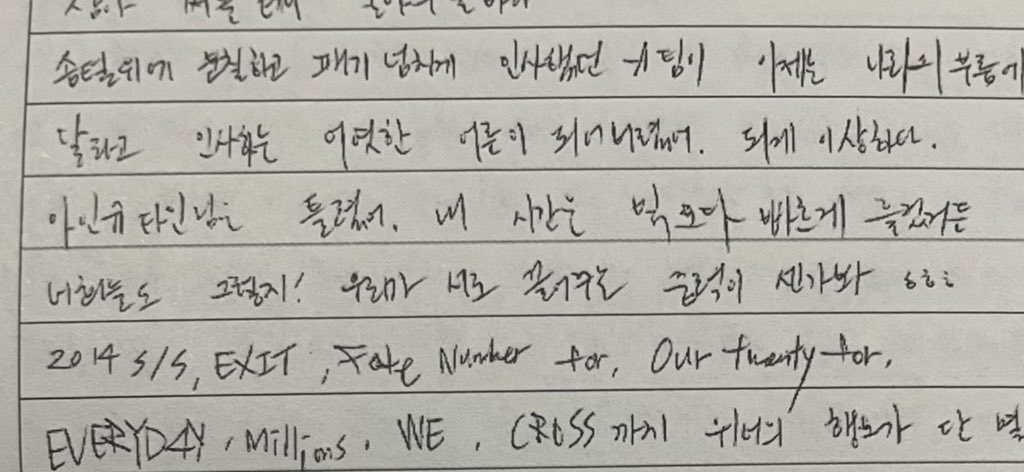 솜털위에 분칠하고 패기 넘치게 인사했던 이제는 나라의 부름에
인사하는 어엿한 어른이 되어버렸어. 되게 이상하다.
아인슈타인님은 틀렸어. 내 시간은 빛보다 빠르게 흘렀거든
너희들도 그렇지! 우리가 서로 끌어주는 중력이 센가봐 ㅎㅎㅎ
2014 S/S, EXIT, Fate Number for, Our twenty for,
EVERYDAY, Millions, WE, CROSS 까지 위너의 행보가 단